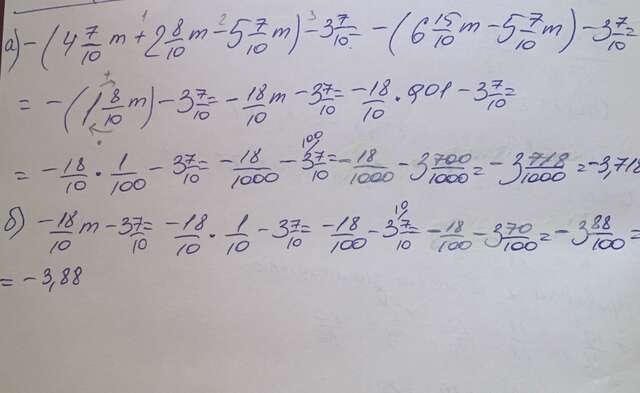 а) -(4 7/10 m + 2 8/10 m - 5 7/10 m) - 3 7/10 = -(6 15/10 m - 5 7/10 m) - 3 7/10 =
= -(1 8/10 m) - 3 7/10 = -18/10 m - 3 7/10 = -18/10 · 0,01 - 3 7/10 =
= -18/10 · 1/100 - 3 7/10 = -18/1000 - 3 7/10 = -18/1000 - 3 700/1000 = -3 718/1000 = -3,718
б) -18/10 m - 3 7/10 = -18/10 · 1/10 - 3 7/10 = -18/100 - 3 7/10 = -18/100 - 3 70/100 = -3 88/100 =
= -3,88